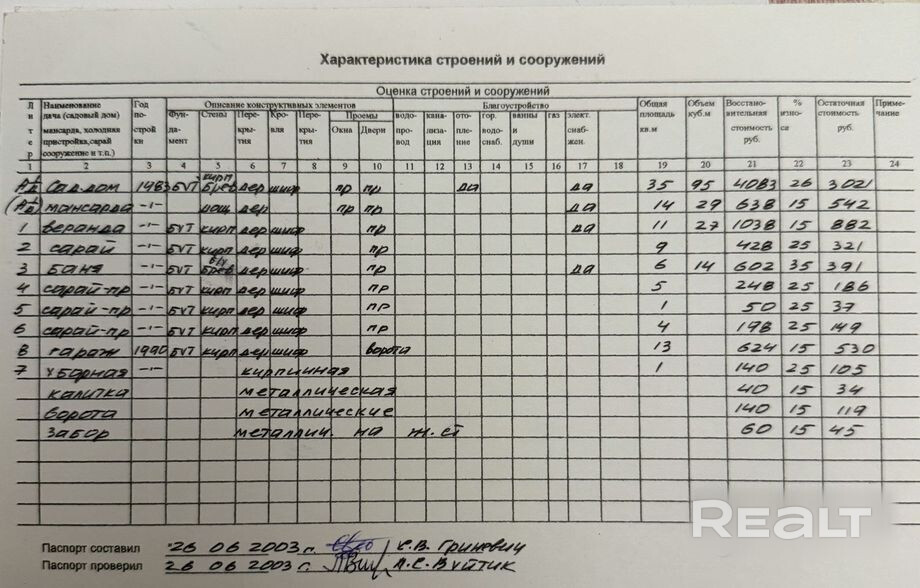 Характеристика строений и сооружений
Оценка строений и сооружений
Литер Наименование дача (садовый дом) мансарда, холодная пристройка,сарай сооружение и т.п.) Год постройки Описание конструктивных элементов Благоустройство Общая площадь кв.м Объем куб.м Восстановительная стоимость руб. % износа Остаточная стоимость руб. Примечание
Фундамент Стены Перекрытия Кровля Перекрытия Проемы Окна Двери водопровод канализация отопление гор. водоснаб. ванны и души газ элект. снабжен.
1 2 3 4 5 6 7 8 9 10 11 12 13 14 15 16 17 18 19 20 21 22 23 24
Сад.дом 1983 БУТ кирп Брев дер шиф пр пр да да 35 95 4083 26 3021
мансарда -"- дощ дер пр пр да 14 29 638 15 542
1 веранда -"- БУТ кирп дер шиф пр да 11 27 1038 15 882
2 сарай -"- БУТ кирп дер шиф пр 9 428 25 321
3 Баня -"- БУТ Брев дер шиф пр да 6 14 602 35 391
4 сарай-пр -"- БУТ кирп дер шиф пр 5 248 25 186
5 сарай-пр -"- БУТ кирп дер шиф пр 1 50 25 37
6 сарай-пр -"- БУТ кирп дер шиф пр 4 198 25 149
8 гараж 1990 БУТ кирп дер шиф ворота 13 624 15 530
7 уборная -"- кирпичная 1 140 25 105
калитка металлическая 40 15 34
ворота металлические 140 15 119
Забор металлич. на ж.ст 60 15 45
Паспорт составил 26 06 2003 г. С.В. Гриневич
Паспорт проверил 26 06 2003 г. А.С. Вуйтик
REALT